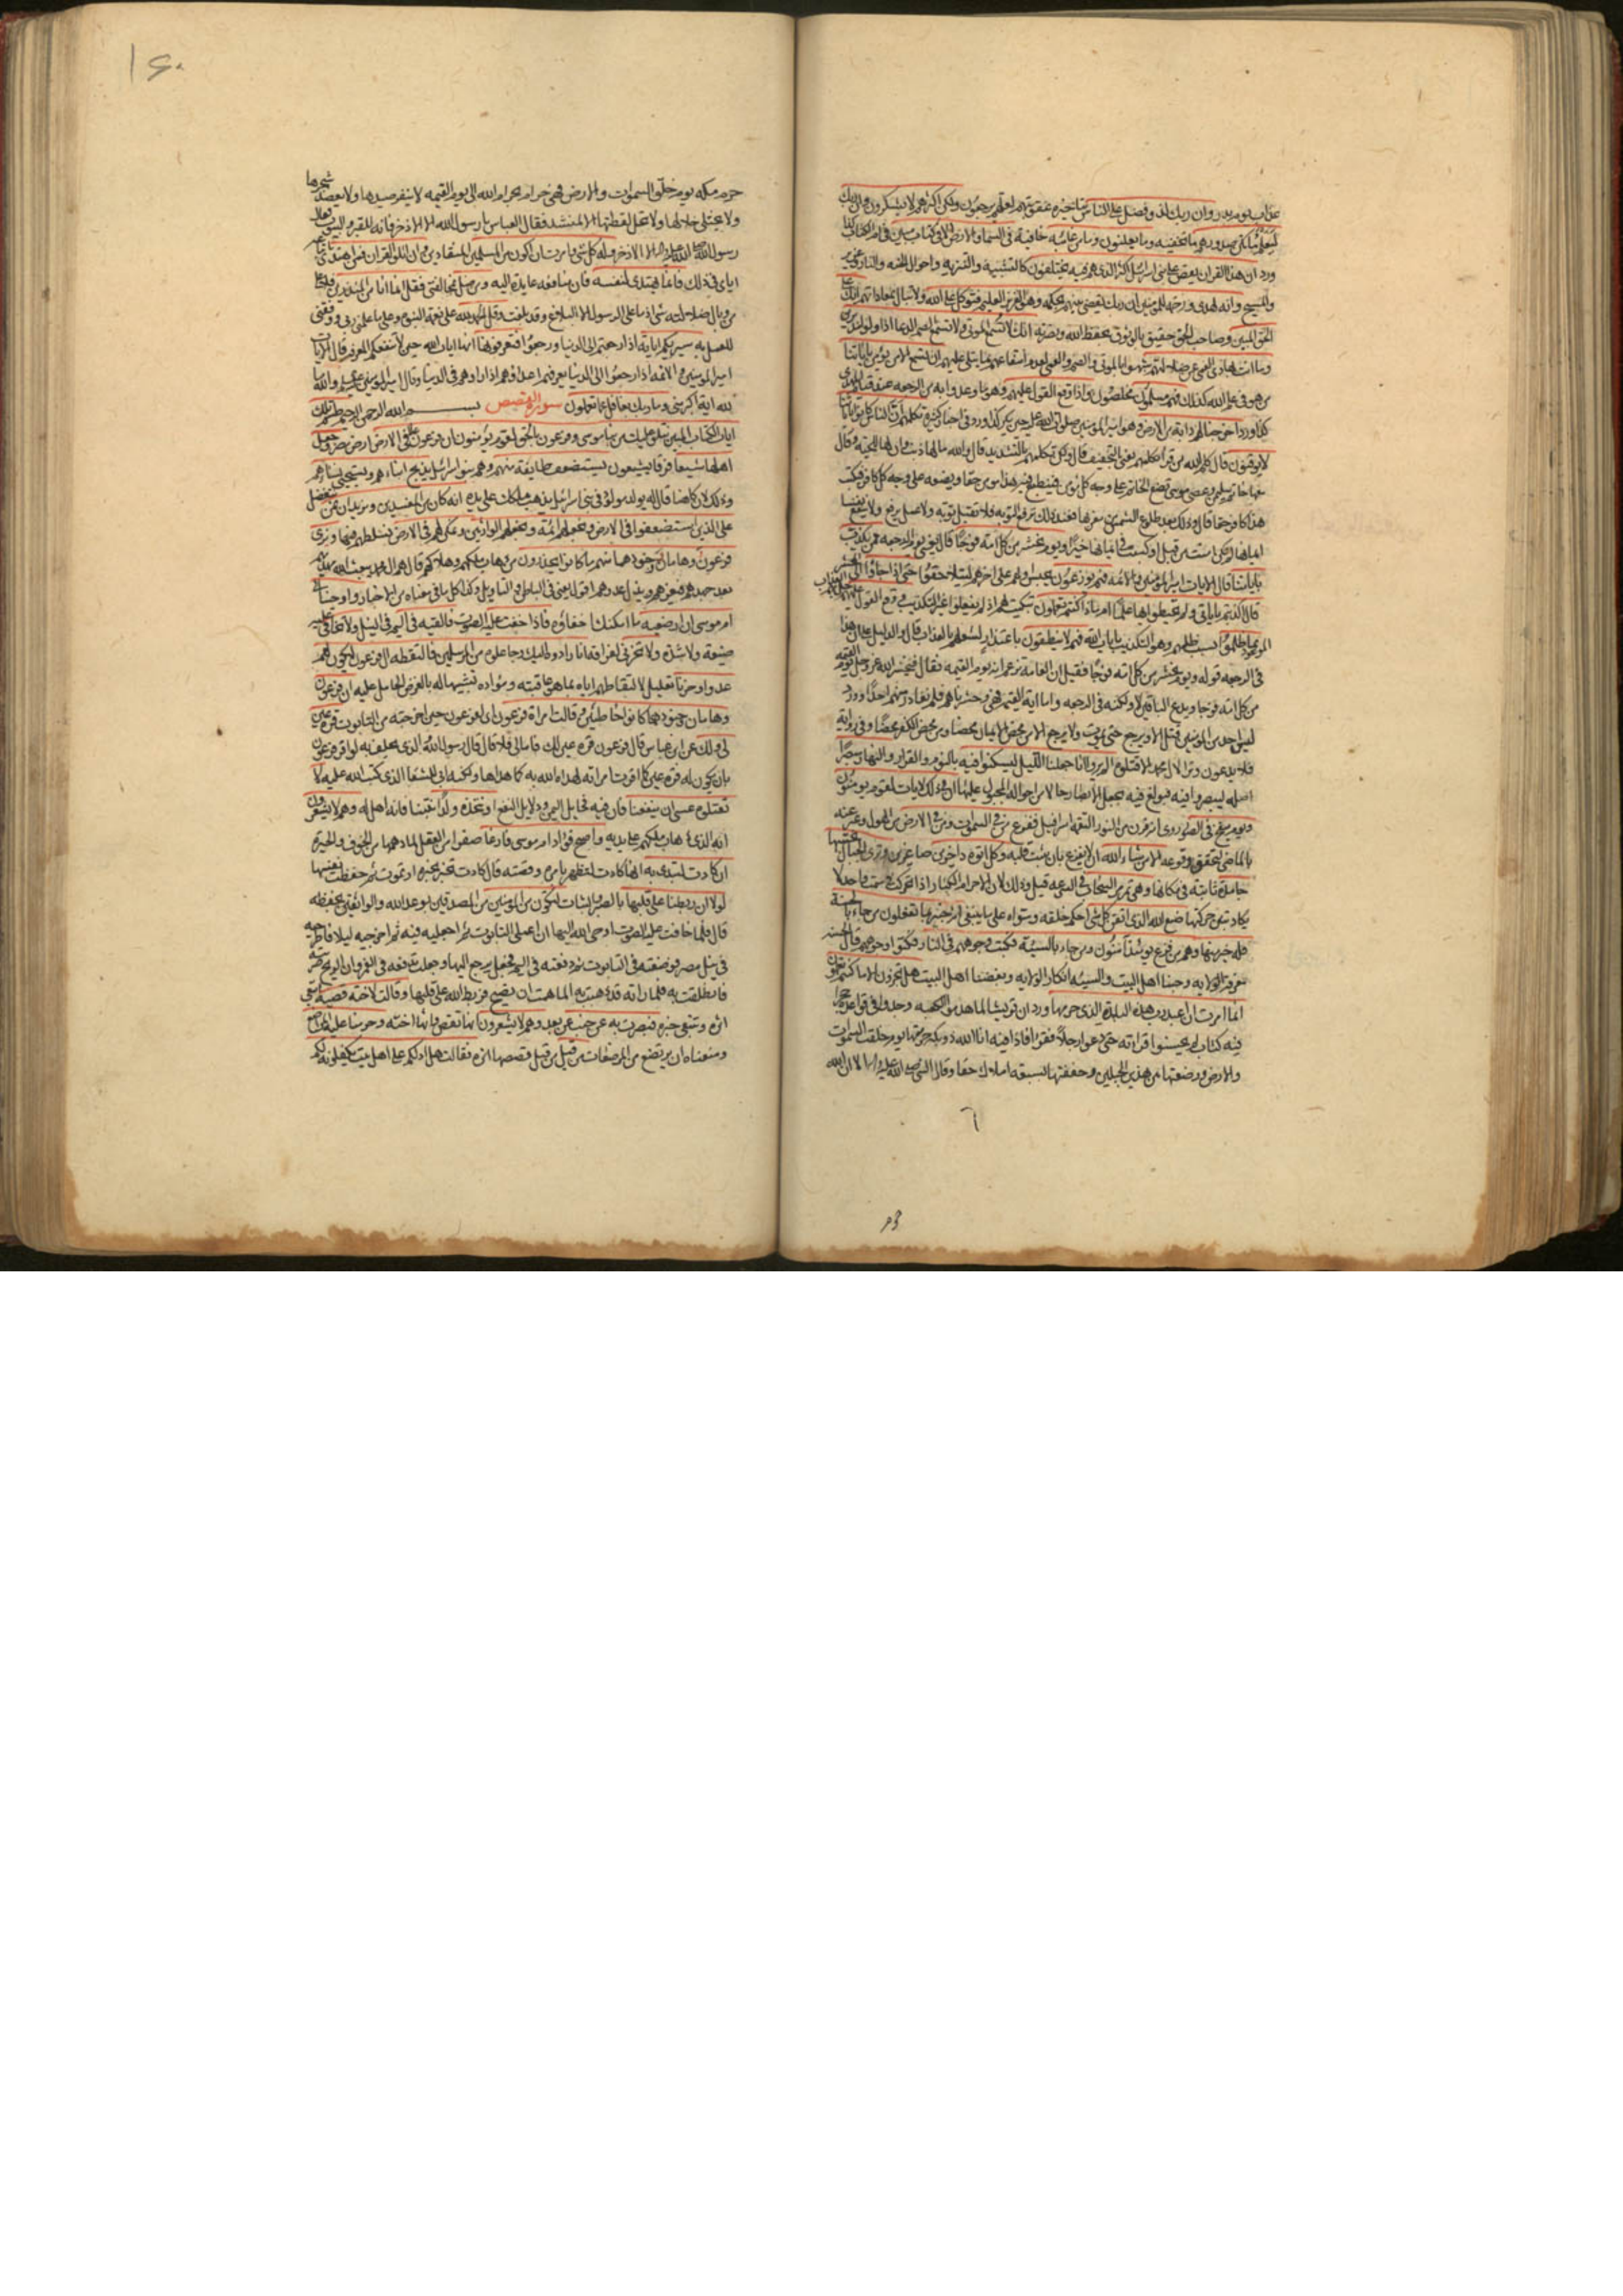 عذاب يوم بدر وان ربك لذو فضل على الناس بتاخيره عقوبتهم لعلهم يرجعون ولكن اكثرهم لا يشكرون وان ربك
ليعلم ما تكن صدورهم ما تخفيه وما يعلنون وما من غائبة خافية في السماء والارض الا في كتاب مبين
ان هذا القران يقص على بني اسرائيل اكثر الذي هم فيه يختلفون كالتشبيه والتنزيه واحوال الجنة والنار وعزير
والمسيح وانه لهدى ورحمة للمؤمنين ان ربك يقضي بينهم بحكمه وهو العزيز العليم فتوكل على الله ولا تبال بمعاداتهم انك على
الحق المبين وصاحب الحق حقيق بالوثوق بحفظ الله ونصرته انك لا تسمع الموتى ولا تسمع الصم الدعاء اذا ولوا مدبرين
وما انت بهادي العمي عن ضلالتهم ان تسمع الا من يؤمن باياتنا
من هو في علم الله كذلك فهم مسلمون مخلصون واذا وقع القول عليهم وهو ما وعدوا به من الرجعة عند قيام المهدي
اخرجنا لهم دابة من الارض وهو امير المؤمنين صلوات الله عليه حين يكر تكلمهم ان الناس كانوا باياتنا
لا يوقنون قال كلم الله من قرا تكلمهم بالتخفيف قال ولكن تكلمهم بالتشديد قال والله ما لها ذنب وان لها للحية وقال
معها خاتم سليمن وعصى موسى تضع الخاتم على وجه كل مؤمن فينطبع فيه هذا مؤمن حقا ويضعه على وجه كل كافر فيكتب
هذا كافر حقا قال وذلك بعد طلوع الشمس من مغربها فعند ذلك ترفع التوبة فلا تقبل توبة ولا عمل يرفع ولا ينفع نفسا
ايمانها لم تكن امنت من قبل او كسبت في ايمانها خيرا ويوم نحشر من كل امة فوجا قال يعني يوم الرجعة ممن يكذب
باياتنا قال الايات امير المؤمنين والائمة فهم يوزعون يحبس اولهم على اخرهم ليتلاحقوا حتى اذا جاؤا الى المحشر
قال اكذبتم باياتي ولم تحيطوا بها علما ام ماذا كنتم تعملون تبكيت لهم اذ لم يفعلوا غير التكذيب ووقع القول عليهم
بما ظلموا بسبب ظلمهم وهو التكذيب بايات الله فهم لا ينطقون باعتذار لشغلهم بالعذاب قال والدليل على ان هذا
في الرجعة قوله ويوم نحشر من كل امة فوجا فقيل ان العامة تزعم انه يوم القيمة فقال فيحشر الله عز وجل يوم القيمة
من كل امة فوجا ويدع الباقين لا ولكنه في الرجعة واما اية القيمة فهي وحشرناهم فلم نغادر منهم احدا وورد
ليس احد من المؤمنين قتل الا ويرجع حتى يموت ولا يرجع الا من محض الايمان محضا ومن محض الكفر محضا وفي رواية
فلا يدعون وترا لال محمد الا قتلوه الم يروا انا جعلنا الليل ليسكنوا فيه بالنوم والقرار والنهار مبصرا
اصله ليبصروا فيه فبولغ فيه بجعل الابصار حالا من احواله المجبول عليها ان في ذلك لايات لقوم يؤمنون
ويوم ينفخ في الصور روي انه قرن من النور التقمه اسرافيل ففزع من في السموات ومن في الارض من الهول وعبر عنه
بالماضي لتحقق وقوعه الا من شاء الله ان لا يفزع بان يثبت قلبه وكل اتوه داخرين صاغرين وترى الجبال تحسبها
جامدة ثابتة في مكانها وهي تمر مر السحاب في السرعة قيل وذلك لان الاجرام الكبار اذا تحركت في سمت واحد لا
يكاد تبين حركتها صنع الله الذي اتقن كل شي احكم خلقه وسواه على ما ينبغي انه خبير بما تفعلون من جاء بالحسنة
فله خير منها وهم من فزع يومئذ امنون ومن جاء بالسيئة فكبت وجوههم في النار فكبوا على وجوههم قال الحسنة
معرفة الولاية وحبنا اهل البيت والسيئة انكار الولاية وبغضنا اهل البيت هل تجزون الا ما كنتم تعملون
انما امرت ان اعبد رب هذه البلدة الذي حرمها ورد ان قريشا لما هدموا الكعبة وجدوا في قواعده حجرا
فيه كتاب لم يحسنوا قراءته حتى دعوا رجلا فقراه فاذا فيه انا الله ذو بكة حرمتها يوم خلقت السموات
والارض ووضعتها بين هذين الجبلين وحففتها بسبعة املاك حفا وقال النبي صلى الله عليه واله الا ان الله
حرم مكة يوم خلق السموات والارض فهي حرام بحرام الله الى يوم القيمة لا ينفر صيدها ولا يعضد شجرها
ولا يختلى خلاها ولا تحل لقطتها الا لمنشد فقال العباس يا رسول الله الا الاذخر فانه للقبر والبيوت فقال
رسول الله صلى الله عليه واله الا الاذخر وله كل شي وامرت ان اكون من المسلمين المنقادين وان اتلو القران فمن اهتدى باتباعه
اياي في ذلك فانما يهتدي لنفسه فان منافعه عائدة اليه ومن ضل بمخالفتي فقل انما انا من المنذرين فلا علي
من وبال ضلاله شي اذ ما على الرسول الا البلاغ وقد بلغت وقل الحمد لله على نعمة النبوة وعلى ما علمني ربي ووفقني
للعمل به سيريكم اياته اذا رجعتم الى الدنيا ورجعوا فتعرفونها انها ايات الله حين لا تنفعكم المعرفة قال الايات
امير المؤمنين والائمة اذا رجعوا الى الدنيا يعرفهم اعداؤهم اذا راوهم في الدنيا وقال امير المؤمنين والله ما
لله اية اكبر مني وما ربك بغافل عما تعملون سورة القصص بسم الله الرحمن الرحيم طسم تلك
ايات الكتاب المبين نتلو عليك من نبا موسى وفرعون بالحق لقوم يؤمنون ان فرعون علا في الارض ارض مصر وجعل
اهلها شيعا فرقا يشيعونه يستضعف طائفة منهم وهم بنو اسرائيل يذبح ابناءهم ويستحيي نساءهم
وذلك لان كاهنا قال له يولد مولود في بني اسرائيل يذهب ملكك على يده انه كان من المفسدين ونريد ان نمن نتفضل
على الذين استضعفوا في الارض ونجعلهم ائمة ونجعلهم الوارثين ونمكن لهم في الارض بتسلطهم فيها ونري
فرعون وهامان وجنودهما منهم ما كانوا يحذرون من ذهاب ملكهم وهلاكهم قال هم ال محمد يبعث الله مهديهم
بعد جهدهم فيعزهم ويذل عدوهم اقول يعني في الباطن والتاويل وكذلك كل ما في معناه من الاخبار واوحينا الى
ام موسى ان ارضعيه ما امكنك اخفاؤه فاذا خفت عليه الصوت فالقيه في اليم في النيل ولا تخافي عليه
ضيعة ولا شدة ولا تحزني لفراقه انا رادوه اليك وجاعلوه من المرسلين فالتقطه ال فرعون ليكون لهم
عدوا وحزنا تعليل لالتقاطهم اياه بما هو عاقبته ومؤداه تشبيها له بالغرض الحامل عليه ان فرعون
وهامان وجنودهما كانوا خاطئين وقالت امراة فرعون اي لفرعون حين اخرجته من التابوت قرة عين
لي ولك عن ابن عباس قال فرعون قرة عين لك فاما لي فلا قال قال رسول الله والذي يحلف به لو اقر فرعون
بان يكون له قرة عين كما اقرت امراته لهداه الله به كما هداها ولكنه ابى للشقا الذي كتب الله عليه لا
تقتلوه عسى ان ينفعنا فان فيه مخايل اليمن ودلايل النفع او نتخذه ولدا نتبناه فانه اهل له وهم لا يشعرون
انه الذي ذهاب ملكهم على يديه واصبح فؤاد ام موسى فارغا صفرا من العقل لما دهمها من الخوف والحيرة
ان كادت لتبدي به انها كادت لتظهر بامره وقصته قال كادت تخبر بخبره او تموت ثم حفظت نفسها
لولا ان ربطنا على قلبها بالصبر والثبات لتكون من المؤمنين من المصدقين بوعد الله والواثقين بحفظه
قال فلما خافت عليه الصوت اوحى الله اليها ان اعملي التابوت ثم اجعليه فيه ثم اخرجيه ليلا فاطرحيه
في نيل مصر فوضعته في التابوت ثم دفعته في اليم فجعل يرجع اليها وجعلت تدفعه في الغمر وان الريح ضربته
فانطلقت به فلما راته قد ذهب به الماء همت ان تصيح فربط الله على قلبها وقالت لاخته قصيه اتبعي
اثره وتتبعي خبره فبصرت به عن جنب عن بعد وهم لا يشعرون انها تقص وانها اخته وحرمنا عليه المراضع
ومنعناه ان يرتضع من المرضعات من قبل من قبل قصصها اثره فقالت هل ادلكم على اهل بيت يكفلونه لكم